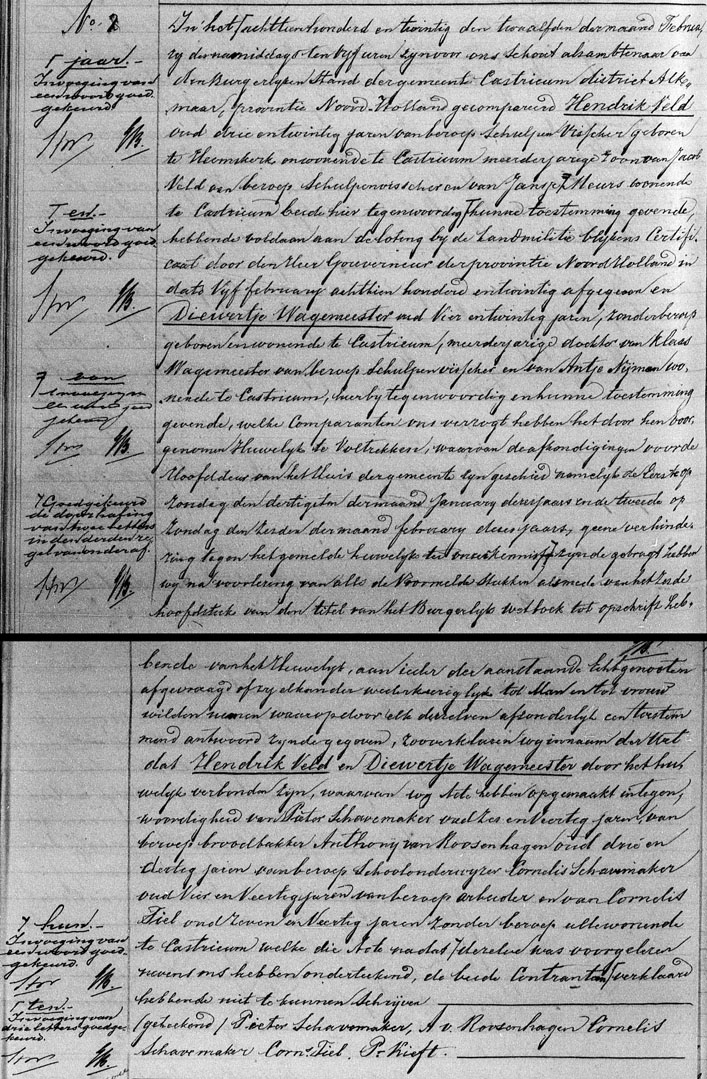 No. 2
In het ⌈achttienhonderd en twintig den twaalfden der maand Februa,
ry des namiddags ten vijf uren zyn voor ons Schout als ambtenaar van
den Burgerlyken Stand der gemeente Castricum district Alk,
maar, provintie Noord-Holland gecompareerd Hendrik Veld
oud drie en twintig jaren van beroep Schulpen Visscher geboren
te Heemskerk en wonende te Castricum meerderjarige Zoon van Jacob
Veld van beroep Schulpenvisscher en van Jansje Meurs wonende
te Castricum beide hier tegenwoordig ⌈hunne toestemming gevende,
hebbende voldaan aan de loting by de Landmilitie blykens Certifi,
caat door den Heer Gouverneur der provintie Noord Holland in
dato Vyf february achttien honderd en twintig afgegeven en
Diewertje Wagemeester oud Vier en twintig jaren, zonder beroep
geboren en wonende te Castricum, meerderjarige dochter van Klaas
Wagemeester van beroep schulpenvisscher en van Antje Nijman wo,
nende te Castricum, hierby tegenwoordig en hunne toestemming
gevende, welke Comparanten ons verzogt hebben het door hen Voor,
genomen Huwelyk te Voltrekken, waarvan de afkondigingen voor de
Hoofddeur van het Huis der gemeente zyn geschied namelyk de Eerste op
Zondag den dertigsten der maand January dezes jaars en de tweede op
Zondag den zesden der maand february dezes jaars, geene verhinde,
ring tegen het gemelde huwelyk ter onzer kennis ⌈zynde gebragt hebben
wy na voorlezing van alle de Voormelde Stukken alsmede van het zesde
hoofdstuk van den titel van het Burgerlyk wetboek tot opschrift heb,
⌈ jaar.-
Invoeging van
een woord goed
gekeurd.
⌈ en.-
Invoeging van
een woord goed
gekeurd.
⌈ van
Invoeging van
een woord goed
gekeurd
⌈ Goedgekeurd
de doorhaling
van twee letters
in den derden re,
gel van onder af.
bende van het Huwelyk, aan ieder der aanstaande Echtgenooten
afgevraagd of zy elkander wederkeeriglyk tot Man en tot vrouw
wilden nemen waarop door elk derzelven afzonderlyk een toestem
mend antwoord zynde gegeven, zoo verklaren wy in naam der Wet
dat Hendrik Veld en Diewertje Wagemeester door het hu,
welyk verbonden zyn, waarvan wy Acte hebben opgemaakt in tegen,
woordigheid van Pieter Schavemaker oud Zes en Veertig jaren, van
beroep broodbakker Anthony van Roosenhagen oud drie en
dertig jaren van beroep Schoolonderwyzer Cornelis Schavemaker
oud Vier en Veertig jaren van beroep arbeider en van Cornelis
Tiel oud Zeven en Veertig jaren Zonder beroep alle wonende
te Castricum welke die Acte nadat ⌈dezelve was voorgelezen
nevens ons hebben ondertekend, de beide Contractan ⌈verklaard
hebbende niet te kunnen Schrijven
(geteekend) Pieter Schavemaker, A v. Roosenhagen Cornelis
Schavemaker Corns. Tiel P. Kieft.
⌈ hun.-
Invoeging van
een woord goed
gekeurd.
⌈ ten.-
Invoeging van
drie letters goedge
keurd.